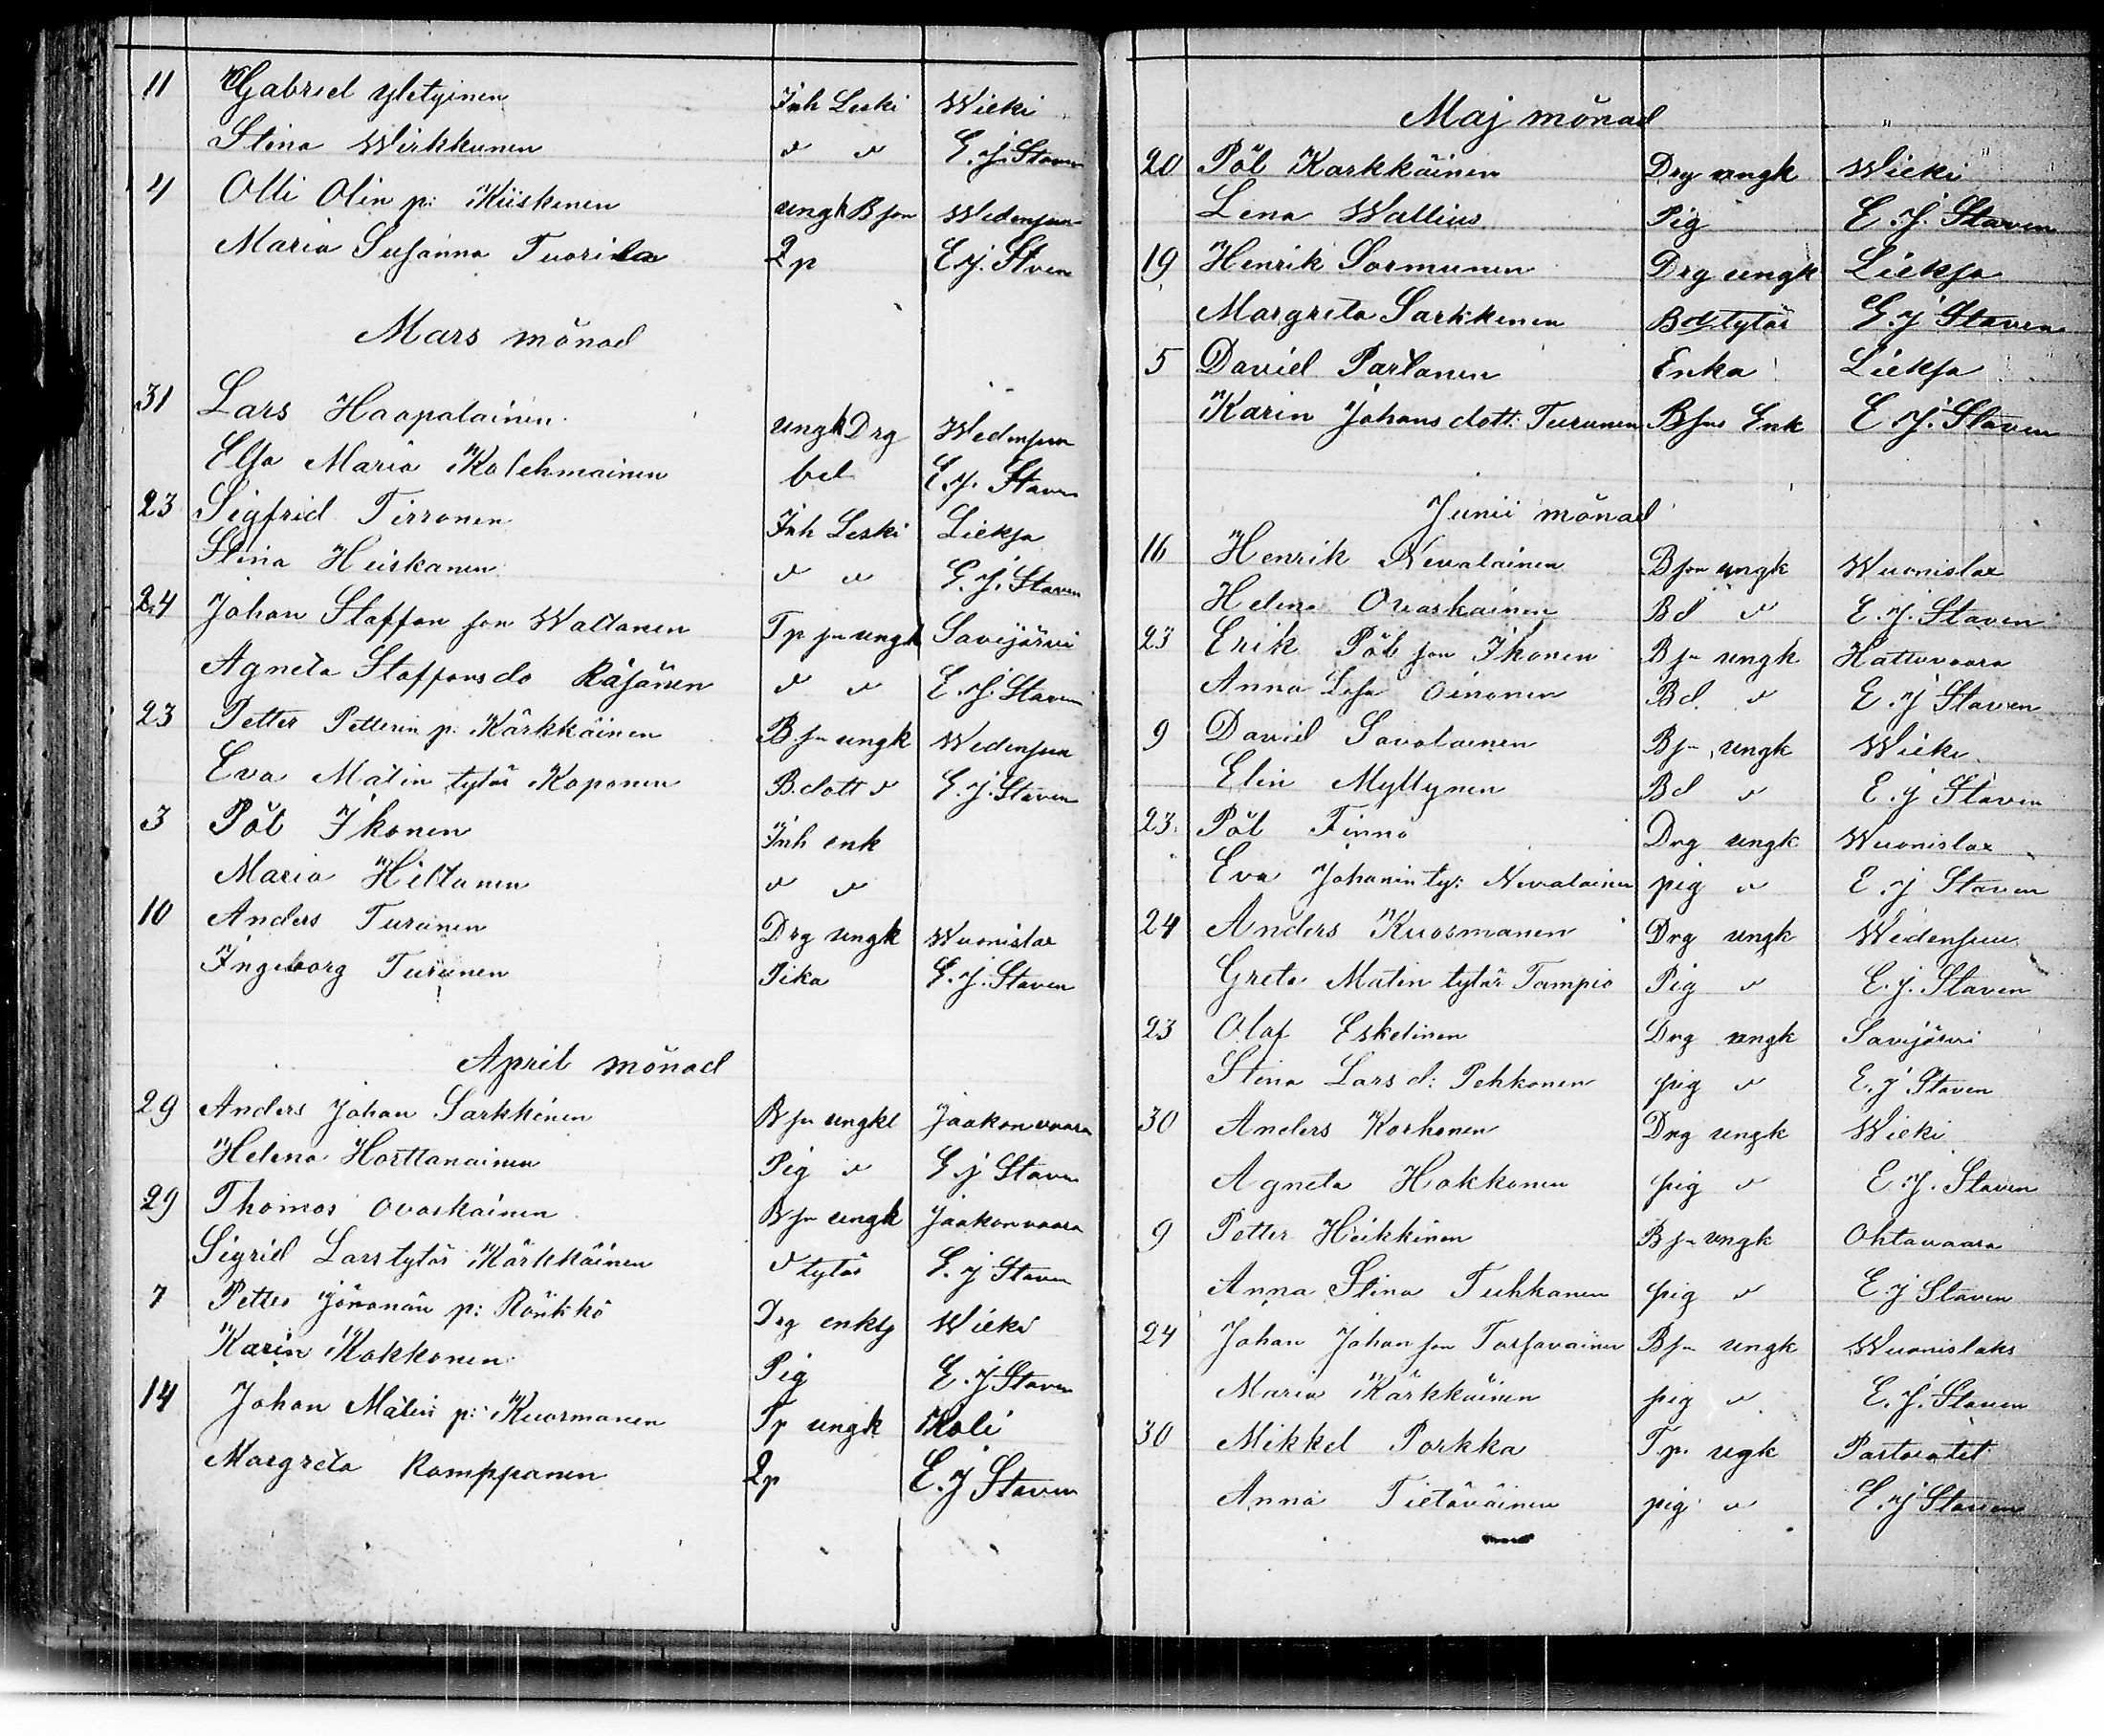 11 Gabriel Yletyinen Inh Leski Wieki
Stina Wirkkunen v v E. J. Staven
4 Olli Olin p: Kiiskenen ungk Bson Wedensuu
Maria Susanna Tuorila Qp E. J. Stven
Mars mönad
31 Lars Haapalainen ungk Drg Wedensuu
Elsa Maria Kolehmainen bd E. J. Staven
23 Sigfrid Tirronen Inh Leski Lieksa
Stina Heiskanen v v E. J. Staven
24 Johan Staffan son Waltanen Tp sn ungk Savijärvi
Agneta Staffansdo Räsänen v v E. J. Staven
23 Petter Petterin p: Kärkkäinen B sn ungk Wedensuu
Eva Matin tytär Koponen B.dott v E. J. Staven
3 Pöl Ikonen Inh enk
Maria Hiltunen v v
10 Anders Turunen Drg ungk Wuonislax
Ingeborg Turunen Pika E. J. Staven
April mönad
29 Anders Johan Sarkkinen B sn ungkl Jaakonvaara
Helena Horttanainen Pig v E j Staven
29 Thomas Ovaskainen B sn ungk Jaakonvaara
Sigrid Larstytär Kärkkäinen v tytär E. j Staven
7 Petter Jöranän p: Rönkkö Drg enkl Wieki
Karin Kokkonen Pig E. j Staven
14 Johan Mätin p: Kuosmanen Tp ungk Koli
Margreta Romppanen Qp E. J Staven
Maj mönad "
20 Pöl Karkkäinen Drg ungk Wieki
Lena Wallius Pig E. J. Staven
19 Henrik Sormunen Drg ungk Lieksa
Margreta Sarkkenen Bdtytär E. j Staven
5 David Partanen Enka Lieksa
Karin Johans dott: Turunen Bsns Enk E. J. Staven
Junii mönad
16 Henrik Nevalainen Bson ungk Wuonislax
Helena Ovaskainen Bd v E. J. Staven
23 Erik Pöl son Ikonen B sn ungk Hattuvaara
Anna Lisa Oinonen Bd. v E. j Staven
9 David Savolainen Bsn ungk Wieki
Elin Myllynen Bd v E. j Staven
23 Pöl Finno Drg ungk Wuonislax
Eva Johanin ty: Nevalainen pig v E. j Staven
24 Anders Kuosmanen Drg ungk Wedensuu
Greta Matin tytär Tampio Pig v E. j. Staven
23 Olof Eskelinen Drg ungk Savijärvi
Stina Lars d: Pehkonen pig v E. j Staven
30 Anders Korhonen Drg ungk Wieki
Agneta Hakkonen pig v E. J. Staven
9 Petter Heikkinen B sn ungk Ohtavaara
Anna Stina Tuhkanen pig v E. j Staven
24 Johan Johan son Torsavainen Bsn ungk Wuonislaks
Maria Kärkkäinen pig v E. J. Staven
30 Mikkel Porkka Tp. ugk Pastoratet
Anna Tietäväinen pig v E. j Staven